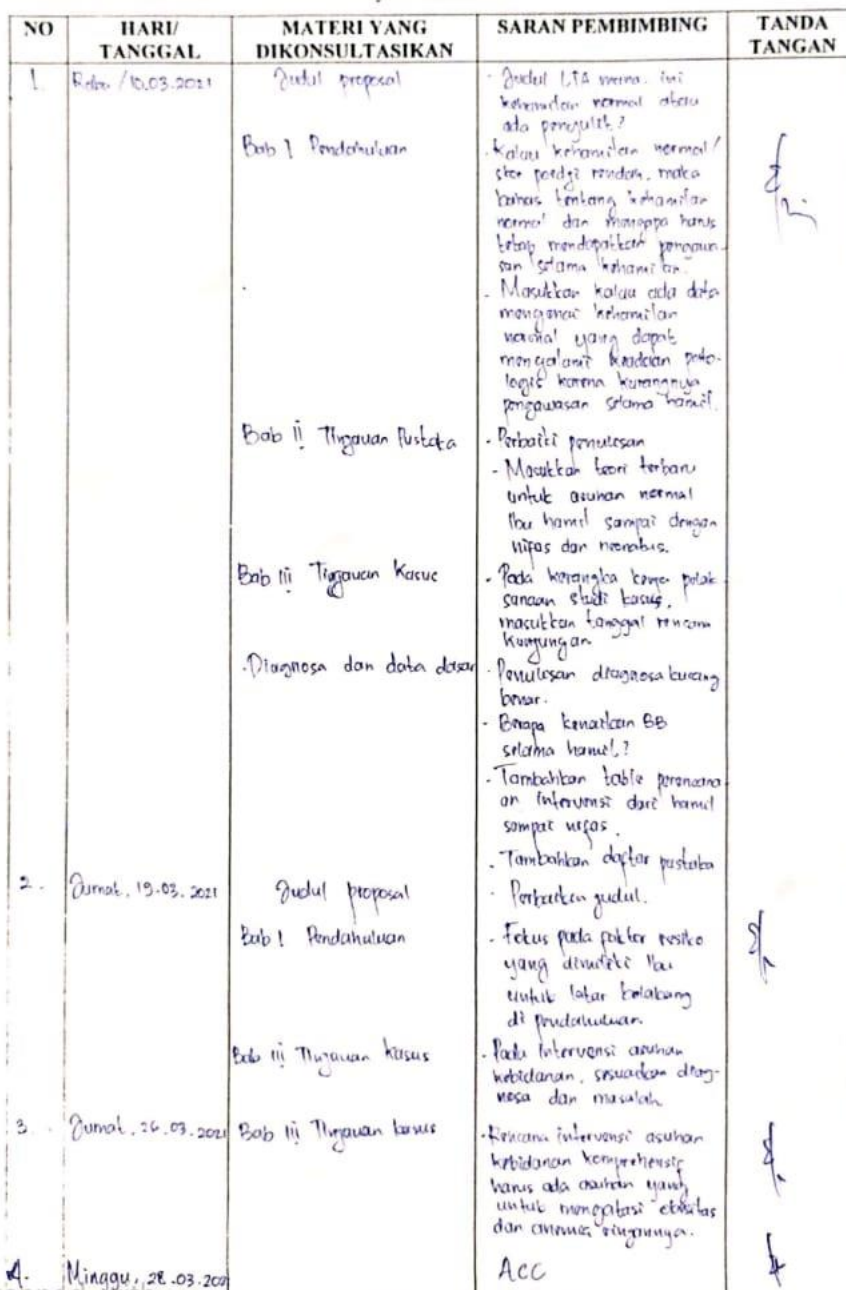 NO HARI/ TANGGAL MATERI YANG DIKONSULTASIKAN SARAN PEMBIMBING TANDA TANGAN
1. Rabu / 10.03.2021 Judul proposal - Judul LTA mana. ini
kehamilan normal atau
ada penyulit?
Bab I Pendahuluan - Kalau kehamilan normal/
skor poedji rendah, maka
bahas tentang kehamilan
normal dan mengapa harus
tetap mendapatkan pengawa-
san selama kehamilan.
- Masukkan kalau ada data
mengenai kehamilan
normal yang dapat
mengalami keadaan pato-
logis karena kurangnya
pengawasan selama hamil.
Bab II Tinjauan Pustaka - Perbaiki penulisan
- Masukkan teori terbaru
untuk asuhan normal
Ibu hamil sampai dengan
nifas dan neonatus.
Bab III Tinjauan Kasus - Pada kerangka kerja pelak
sanaan studi kasus,
masukkan tanggal rencana
kunjungan
- Diagnosa dan data dasar - Penulisan diagnosa kurang
benar.
- Berapa kenaikan BB
selama hamil?
- Tambahkan table perencana-
an intervensi dari hamil
sampai nifas.
- Tambahkan daftar pustaka
2. Jumat, 19.03.2021 Judul proposal - Perbaikan judul.
Bab I Pendahuluan - Fokus pada faktor resiko
yang dimiliki Ibu
untuk latar belakang
di pendahuluan.
Bab III Tinjauan Kasus - Pada intervensi asuhan
kebidanan, sesuaikan diag-
nosa dan masalah
3. Jumat, 26.03.2021 Bab III Tinjauan kasus - Rencana intervensi asuhan
kebidanan komprehensif
harus ada asuhan yang
untuk mengatasi obesitas
dan anemia ringannya.
4. Minggu, 28.03.202 ACC